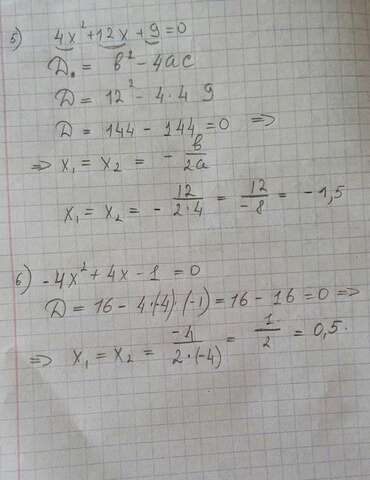 5) 4x² + 12x + 9 = 0
D = b² - 4ac
D = 12² - 4·4 9
D = 144 - 144 = 0 =>
=> x₁ = x₂ = - b/2a
x₁ = x₂ = - 12/2·4 = 12/-8 = -1,5
6) -4x² + 4x - 1 = 0
D = 16 - 4·(-4)·(-1) = 16 - 16 = 0 =>
=> x₁ = x₂ = -4/2·(-4) = 1/2 = 0,5.